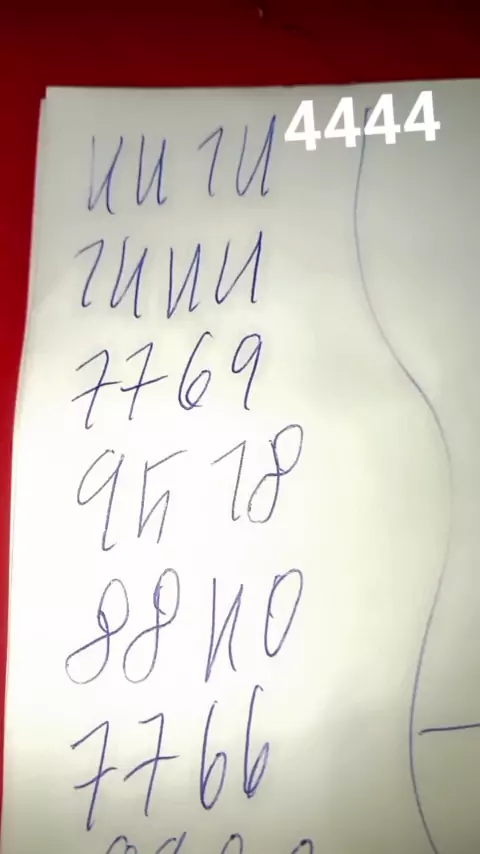 4414 4444
1444
7769
9518
8840
7766